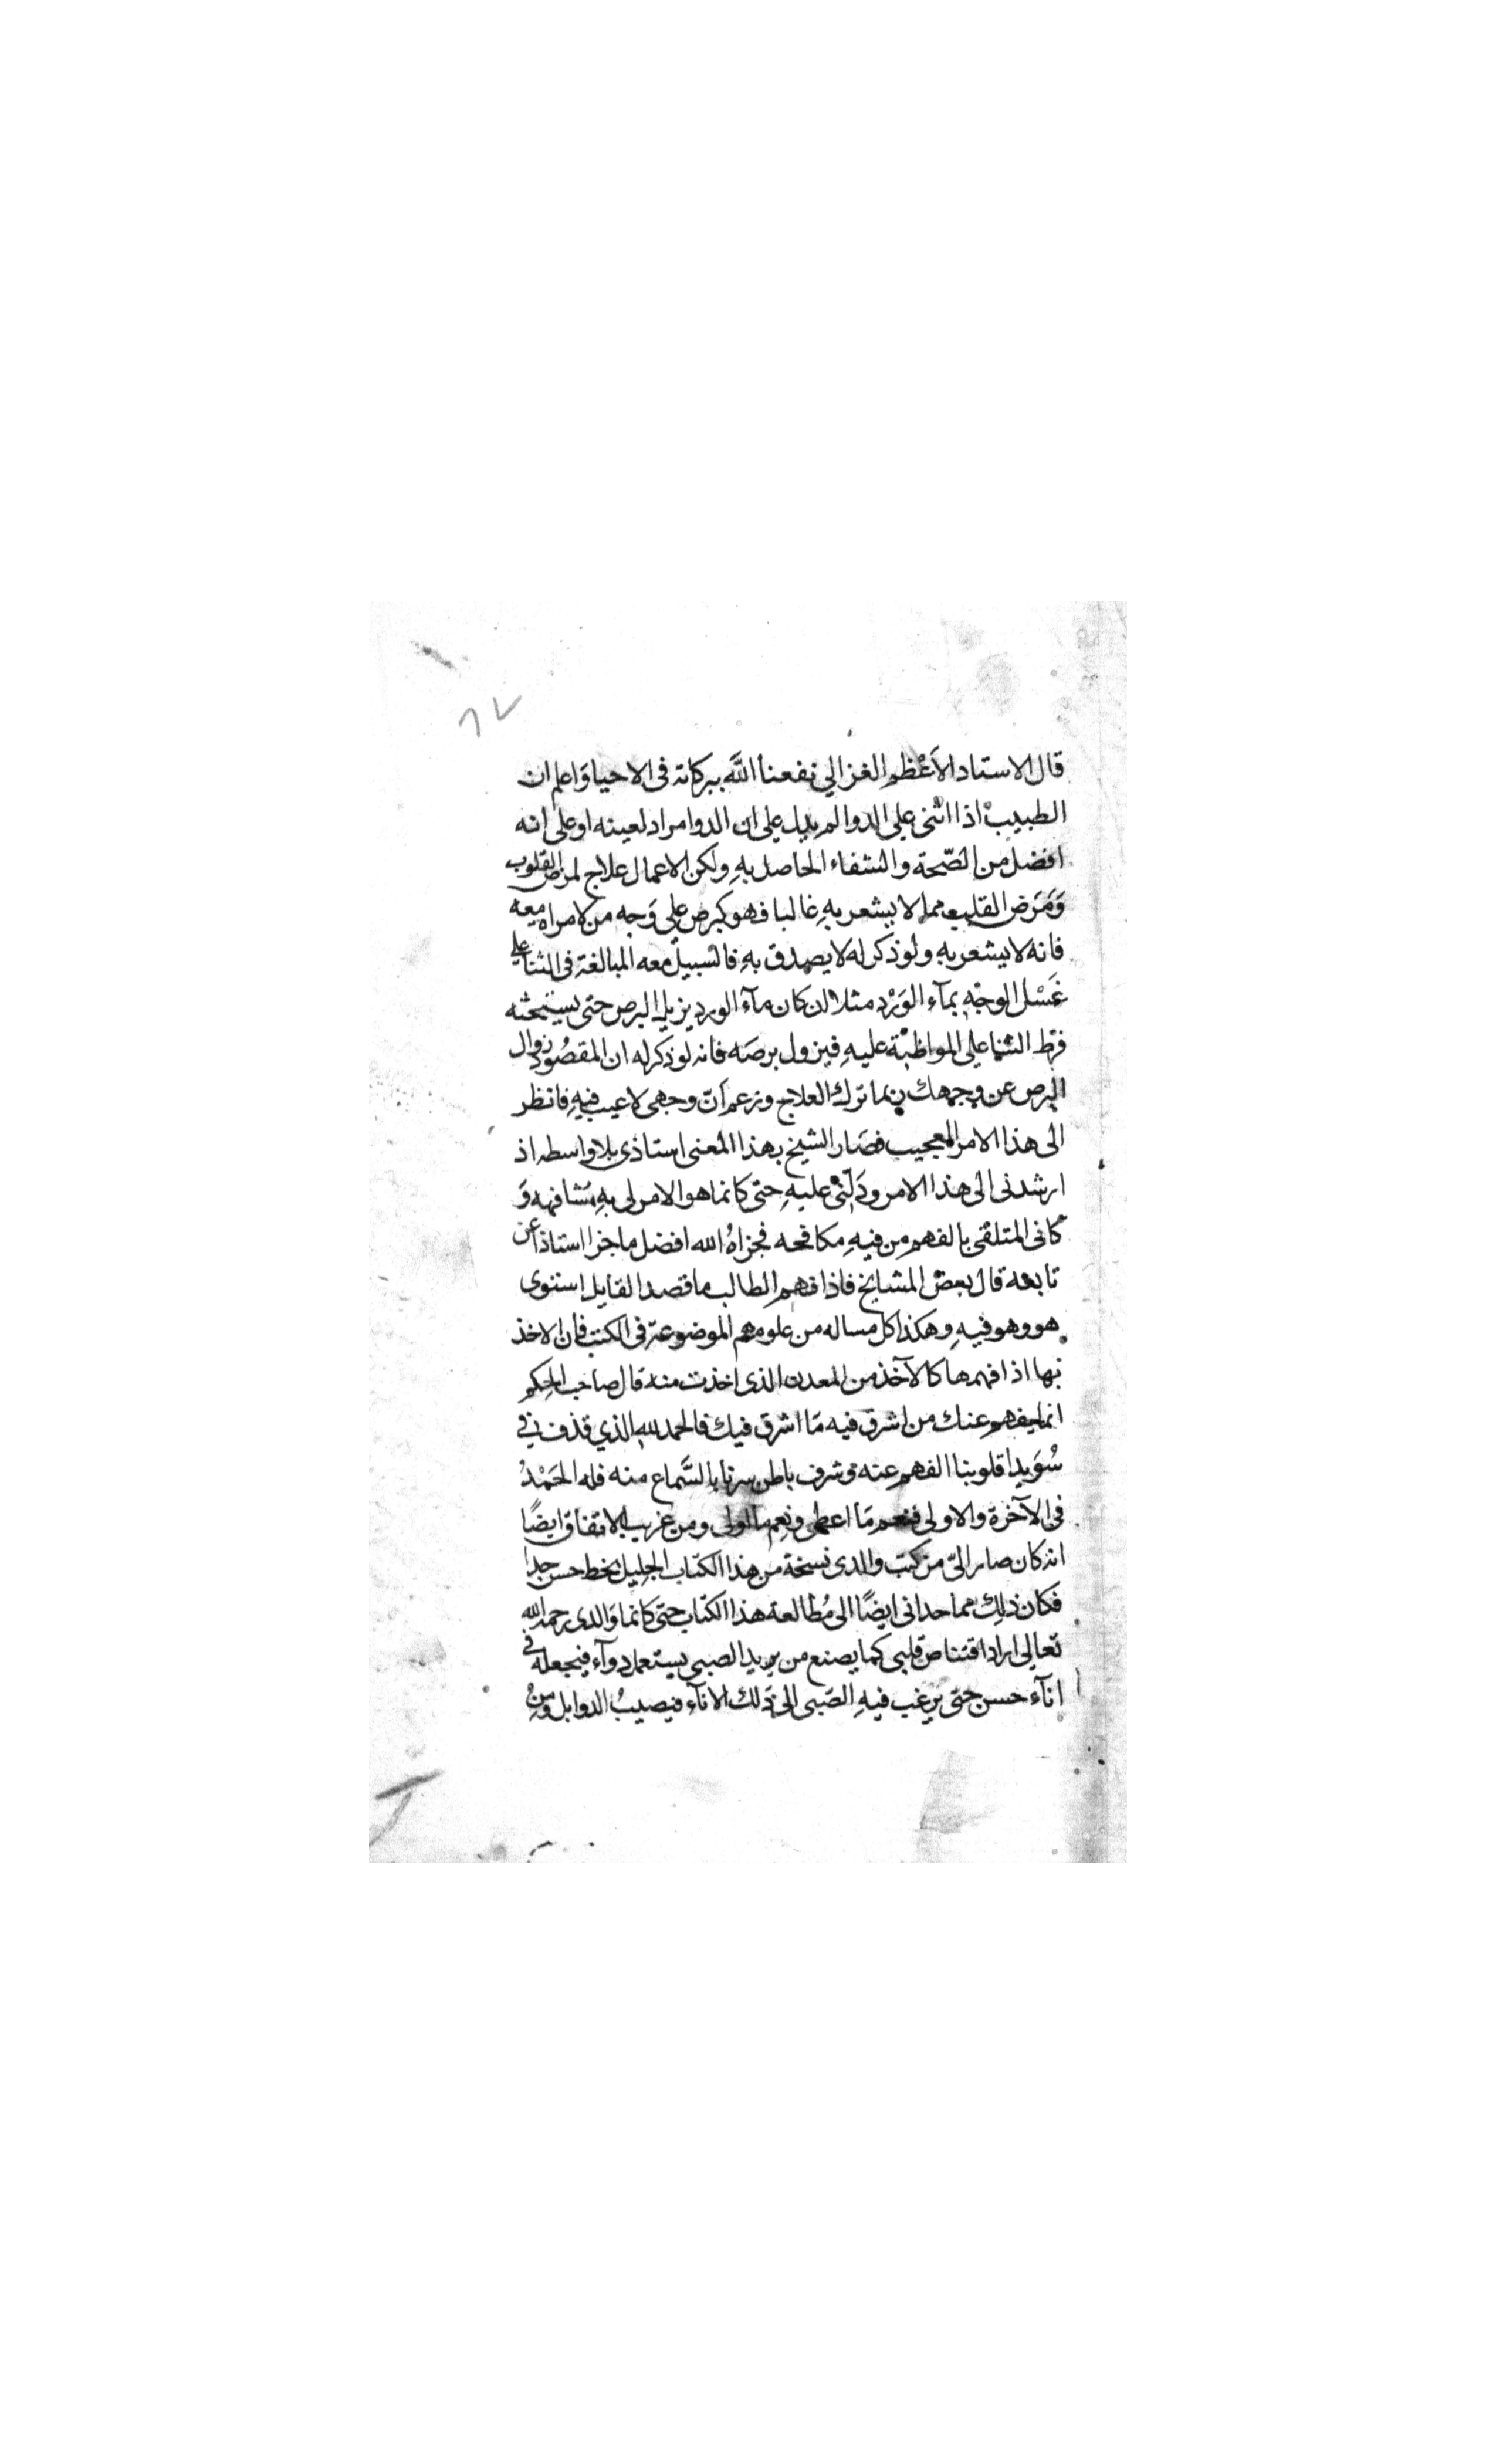 ٦٧
قال الاستاد الاَعْظم الغزالي نفعنا اللَّه ببركاته فى الاحيا وَاعلم ان
الطبيب اذا اثنى على الدوا لم يدل على ان الدوا مراد لعينه او على انه
افضل من الصّحة والشفاء الحاصل بهِ ولكن الاعمال علاج لمرض القلوب
وَمَرَض القلب مما لا يشعر بهِ غالبا فهو كبرص على وَجه من لا مراه معه
فانه لا يشعر بهِ ولو ذكر له لا يصدق بهِ فالسبيل معه المبالغة فى الثنا على
غَسْل الوجْهِ بمآء الوَرْد مثلا ان كان مآء الورد يزيل البرص حتى يستحثه
فرط الثنا على المواظبَة عليهِ فيزول برصَه فانه لو ذكر له ان المقصُود زوال
البرص عن وجهك ربما ترك العلاج وزعم اَنّ وجهى لا عيب فيهِ فانظر
الى هذا الامر العجيب فصَار الشيخ بهذا المعنى استاذى بلا واسطه اذ
ارشدنى الى هذا الامر ودَلّنى عليهِ حتى كانما هو الامر لى بهِ مَشافهه وَ
كانى المتلقى بالفهم من فيهِ مكافحه فجزاهُ الله افضل ما جزا استاذا عن
تابعه قال بعض المشايخ فاذا فهم الطالب ما قصد القايل استوى
هو وهو فيهِ وهكذا كل مساله من علومهم الموضوعة فى الكتب فان الاخذ
بها اذا فهمها كالآخذ من المعدن الذى اخذت منه قال صاحب الحِكم
انما يفهم عنك من اشرق فيه مَا اشرق فيك فالحمد للهِ الذي قذف في
سُوَيدا قلوبنا الفهم عنه وشرف باطن سرنا بالسَّماع منه فله الحَمْدُ
فى الآخرة والاولى فنعم مَا اعطى ونِعم ما اولى ومن غريب الاتفاق ايضًا
انه كان صار اليّ من كتب والدى نسخة من هذا الكتاب الجليل بخط حسن جدا
فكان ذلك مما حدانى ايضًا الى مُطالعة هذا الكتاب حتى كانما وَالدى رحمه الله
تعالى اراد اقتناص قلبى كما يصنع من يريد الصبى يستعمل دوآء فيجعله فى
انآء حسن حتى يرغب فيهِ الصَبى الى ذلك الانآء فيصيبُ الدوا بل ومن